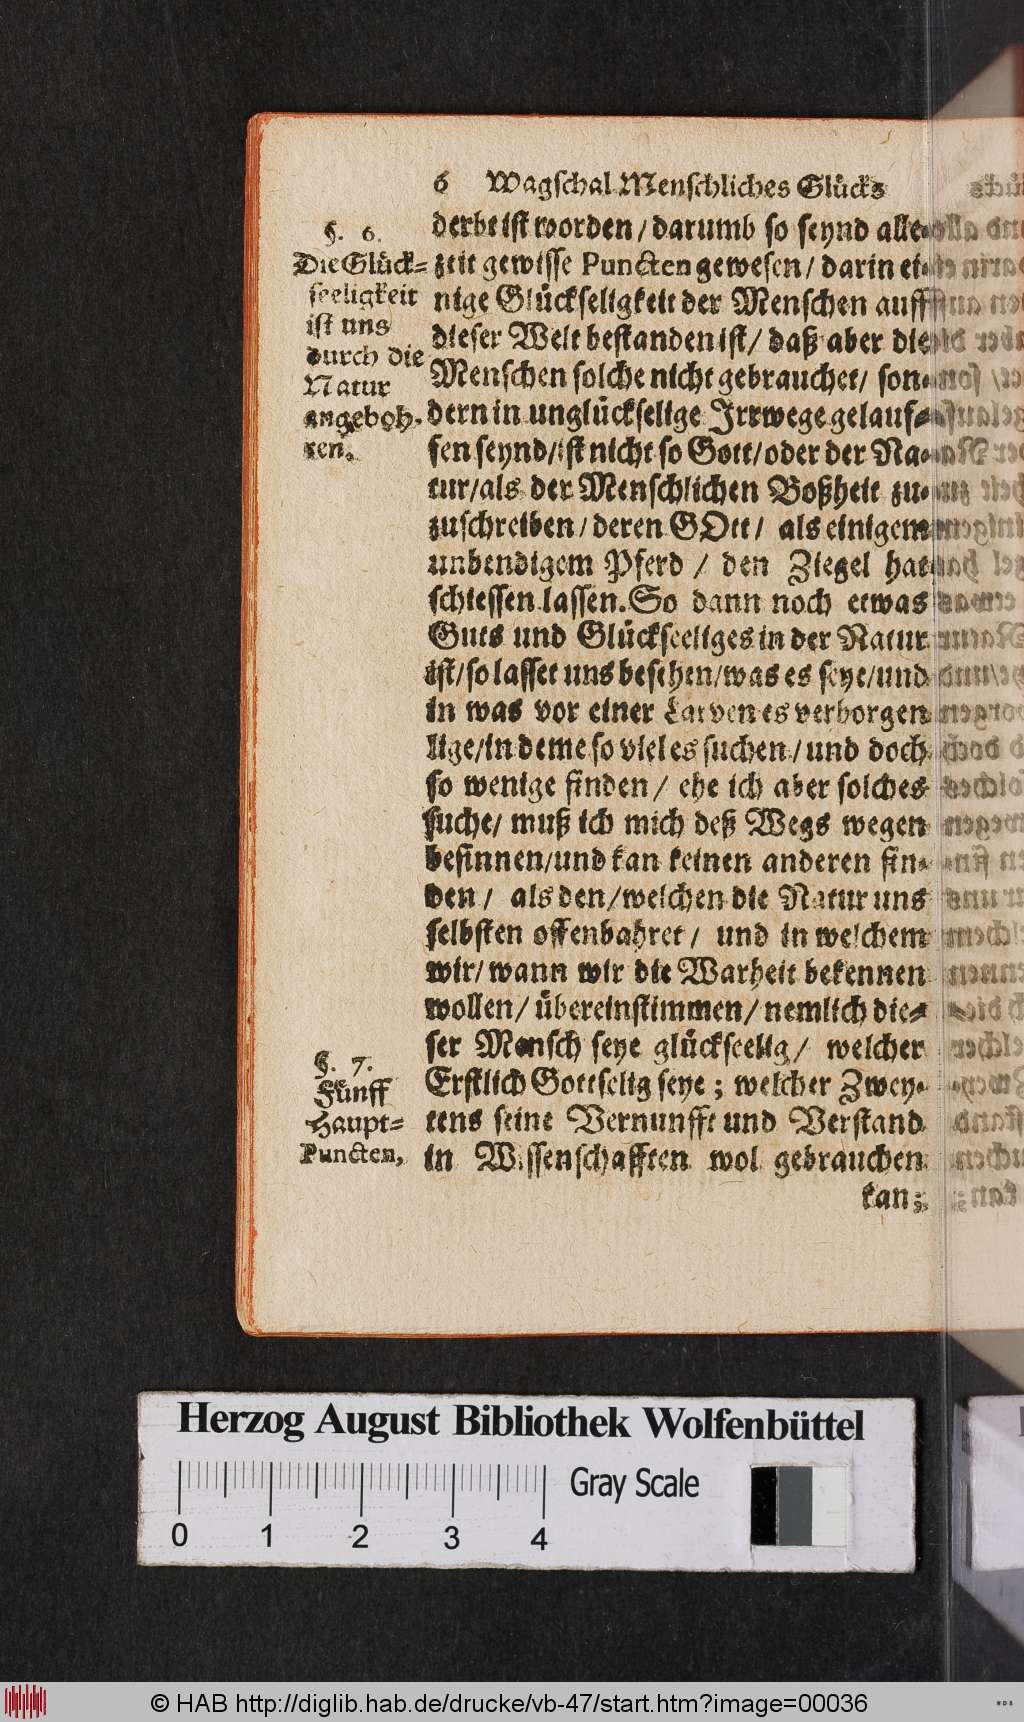 6 Wagschal Menschliches Glücks
§. 6.
Die Glück-
seeligkeit
ist uns
durch die
Natur
angeboh-
ren.
derbt ist worden / darumb so seynd alle-
zeit gewisse Puncten gewesen / darin ei-
nige Glückseligkeit der Menschen auff
dieser Welt bestanden ist / daß aber die
Menschen solche nicht gebrauchet / son-
dern in unglückselige Irrwege gelauf-
sen seynd / ist nicht so Gott / oder der Na-
tur / als der Menschlichen Boßheit zu-
zuschreiben / deren GOtt / als einigem
unbendigem Pferd / den Ziegel hat
schiessen lassen. So dann noch etwas
Guts und Glückseeliges in der Natur
ist / so lasset uns besehen / was es seye / und
in was vor einer Larven es verborgen
lige / in deme so viel es suchen / und doch
so wenige finden / ehe ich aber solches
suche / muß ich mich deß Wegs wegen
besinnen / und kan keinen anderen fin-
den / als den / welchen die Natur uns
selbsten offenbahret / und in welchem
wir / wann wir die Warheit bekennen
wollen / übereinstimmen / nemlich die-
ser Mensch seye glückseelig / welcher
Erstlich Gottselig seye ; welcher Zwey-
tens seine Vernunfft und Verstand
in Wissenschafften wol gebrauchen
kan ;
§. 7.
Fünff
Haupt-
Puncten,
Herzog August Bibliothek Wolfenbüttel
0 1 2 3 4
Gray Scale
© HAB http://diglib.hab.de/drucke/vb-47/start.htm?image=00036